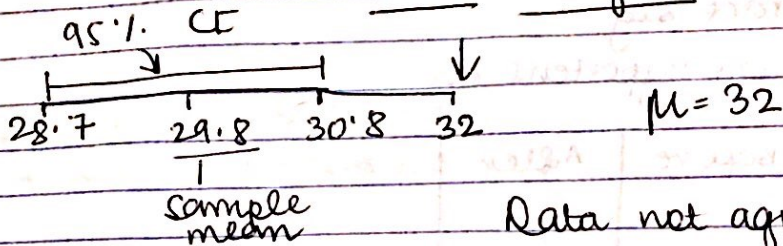 95%. CI
28.7 29.8 30.8 32 μ = 32
sample
mean Data not